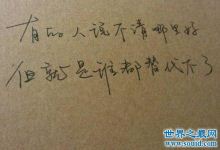 有的人说不清哪里好
但就是谁都替代不了
世界之最网
www.souid.com